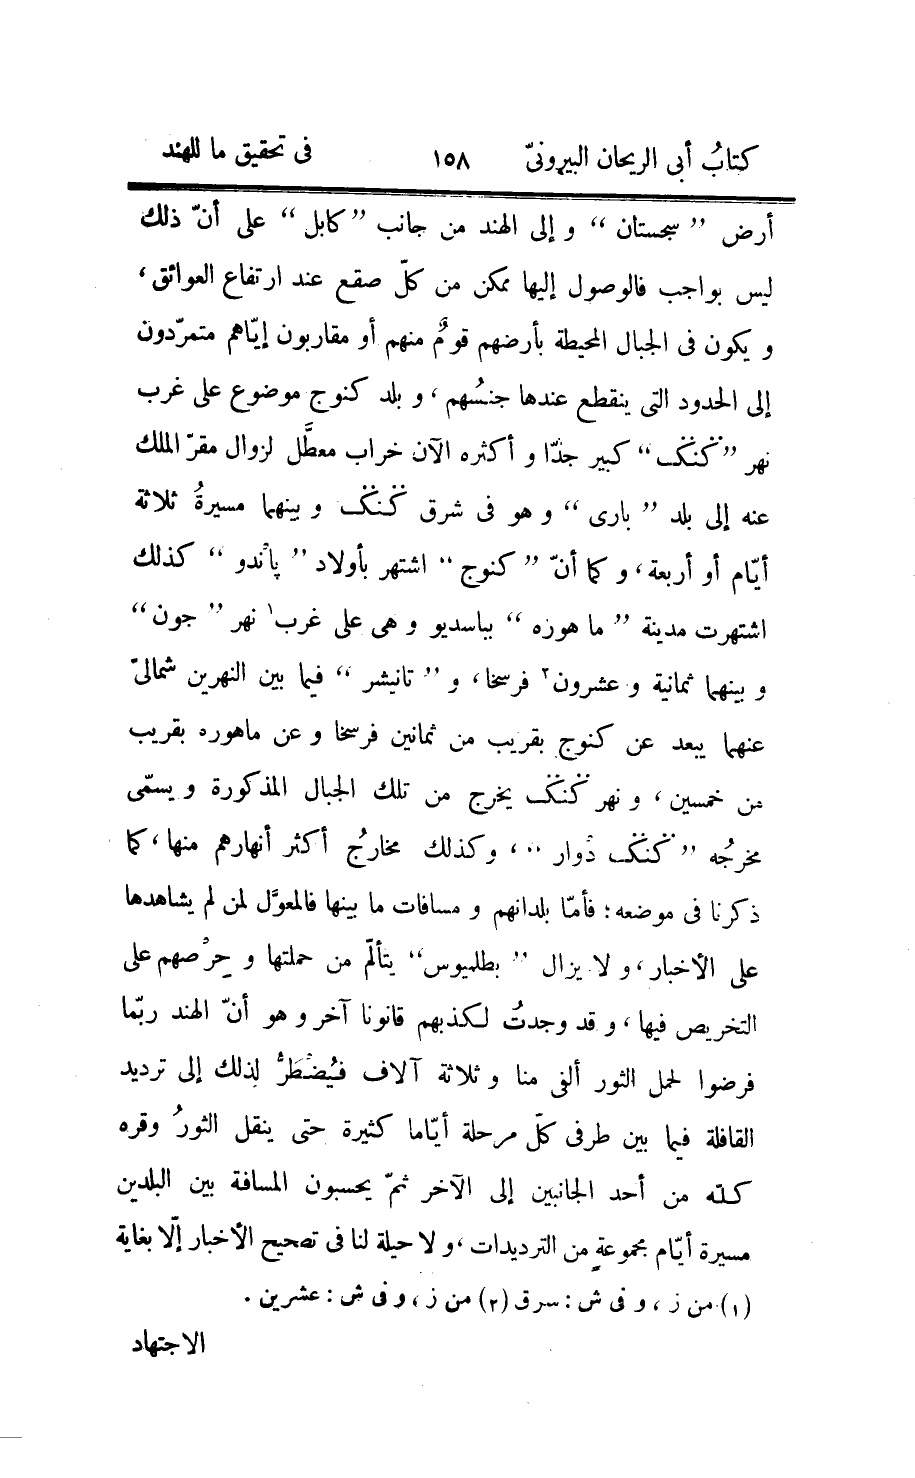 كتابُ أبى الريحان البيرونىّ ١٥٨ فى تحقيق ما للهند
أرض ”سجستان“ و إلى الهند من جانب ”كابل“ على أنّ ذلك
ليس بواجب فالوصول إليها ممكن من كلّ صقع عند ارتفاع العوائق،
و يكون فى الجبال المحيطة بأرضهم قومٌ منهم أو مقاربون إيّاهم متمرّدون
إلى الحدود التى ينقطع عندها جنسُهم، و بلد كنوج موضوع على غرب
نهر ”كنݣ“ كبير جدّا و أكثره الآن خراب معطَّل لزوال مقرّ الملك
عنه إلى بلد ”بارى“ و هو فى شرق كنݣ و بينهما مسيرةُ ثلاثة
أيّام أو أربعة، و كما أنّ ”كنوج“ اشتهر بأولاد ”پاندو“ كذلك
اشتهرت مدينة ”ماهوزه“ بباسديو و هى على غرب١ نهر ”جون“
و بينهما ثمانية و عشرون٢ فرسخا، و ”تانيشر“ فيما بين النهرين شمالىّ
عنهما يبعد عن كنوج بقريب من ثمانين فرسخا و عن ماهوره بقريب
من خمسين، و نهر كنݣ يخرج من تلك الجبال المذكورة و يسمّى
مخرجُه ”كنݣ دْوار“، وكذلك مخارجُ أكثر أنهارهم منها، كما
ذكرنا فى موضعه؛ فأمّا بلدانهم و مسافات ما بينها فالمعوَّل لمن لم يشاهدها
على الأخبار، و لا يزال ”بطلميوس“ يتألّم من حملتها و حِرْصهم على
التخريص فيها، و قد وجدتُ لكذبهم قانونا آخر و هو أنّ الهند ربّما
فرضوا لحمل الثور ألفى منا و ثلاثة آلاف فيُضْطَرُّ لِذلك إلى ترديد
القافلة فيما بين طرفى كلّ مرحلة أيّاما كثيرة حتى ينقل الثورُ وقره
كلّه من أحد الجانبين إلى الآخر ثمّ يحسبون المسافة بين البلدين
مسيرة أيّام مجموعةٍ من الترديدات، و لا حيلة لنا فى تصحيح الأخبار إلّا بغاية
(١) من ز، و فى ش: سرق (٢) من ز، و فى ش: عشرين.
الاجتهاد